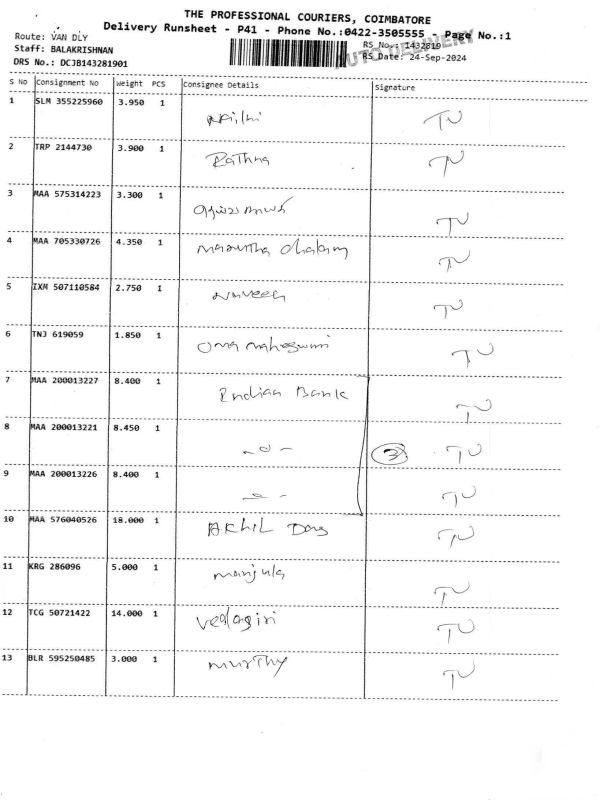 THE PROFESSIONAL COURIERS, COIMBATORE
Delivery Runsheet - P41 - Phone No.:0422-3505555 - Page No.:1
Route: VAN DLY
Staff: BALAKRISHNAN
DRS No.: DCJB143281901
AUTO DELIVERY
RS No.: 1432819
RS Date: 24-Sep-2024
S No Consignment No Weight PCS Consignee Details Signature
1 SLM 355225960 3.950 1 TU
2 TRP 2144730 3.900 1 Rathna TU
3 MAA 575314223 3.300 1 TU
4 MAA 705330726 4.350 1 TU
5 IXM 507110584 2.750 1 Naveen TU
6 TNJ 619059 1.850 1 Uma maheswari TU
7 MAA 200013227 8.400 1 Indian Bank TU
8 MAA 200013221 8.450 1 -o- 3 TU
9 MAA 200013226 8.400 1 -o- TU
10 MAA 576040526 18.000 1 AKhil Das TU
11 KRG 286096 5.000 1 manjula TU
12 TCG 50721422 14.000 1 Vedagiri TU
13 BLR 595250485 3.000 1 murthy TU